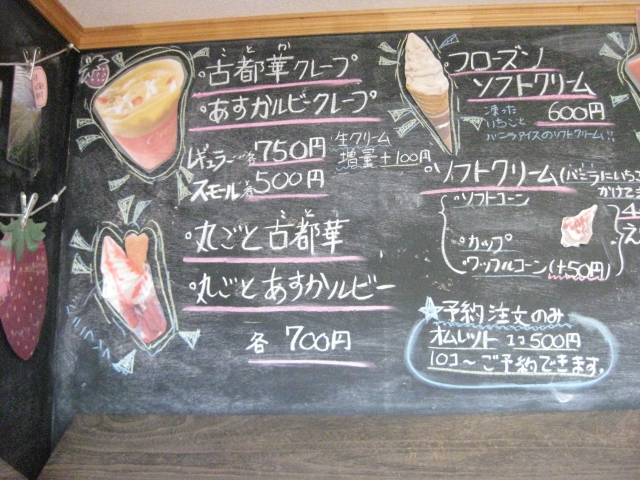 ことか
古都華クレープ
あすかルビークレープ
レギュラー…各750円
スモール…各500円
生クリーム
増量+100円
ことか
丸ごと古都華
丸ごとあすかルビー
各 700円
フローズン
ソフトクリーム
600円
凍った
いちごと
バニラアイスのソフトクリーム!!
ソフトクリーム(バニラにいちご
かけて
ソフトコーン
カップ
ワッフルコーン(+50円)
4
え
☆予約注文のみ
オムレット 1コ500円
10コ～ご予約できます。